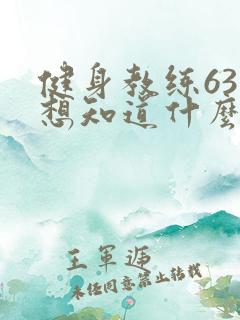 健身教练63
想知道什麼
王軍遞
未经同意禁止转载